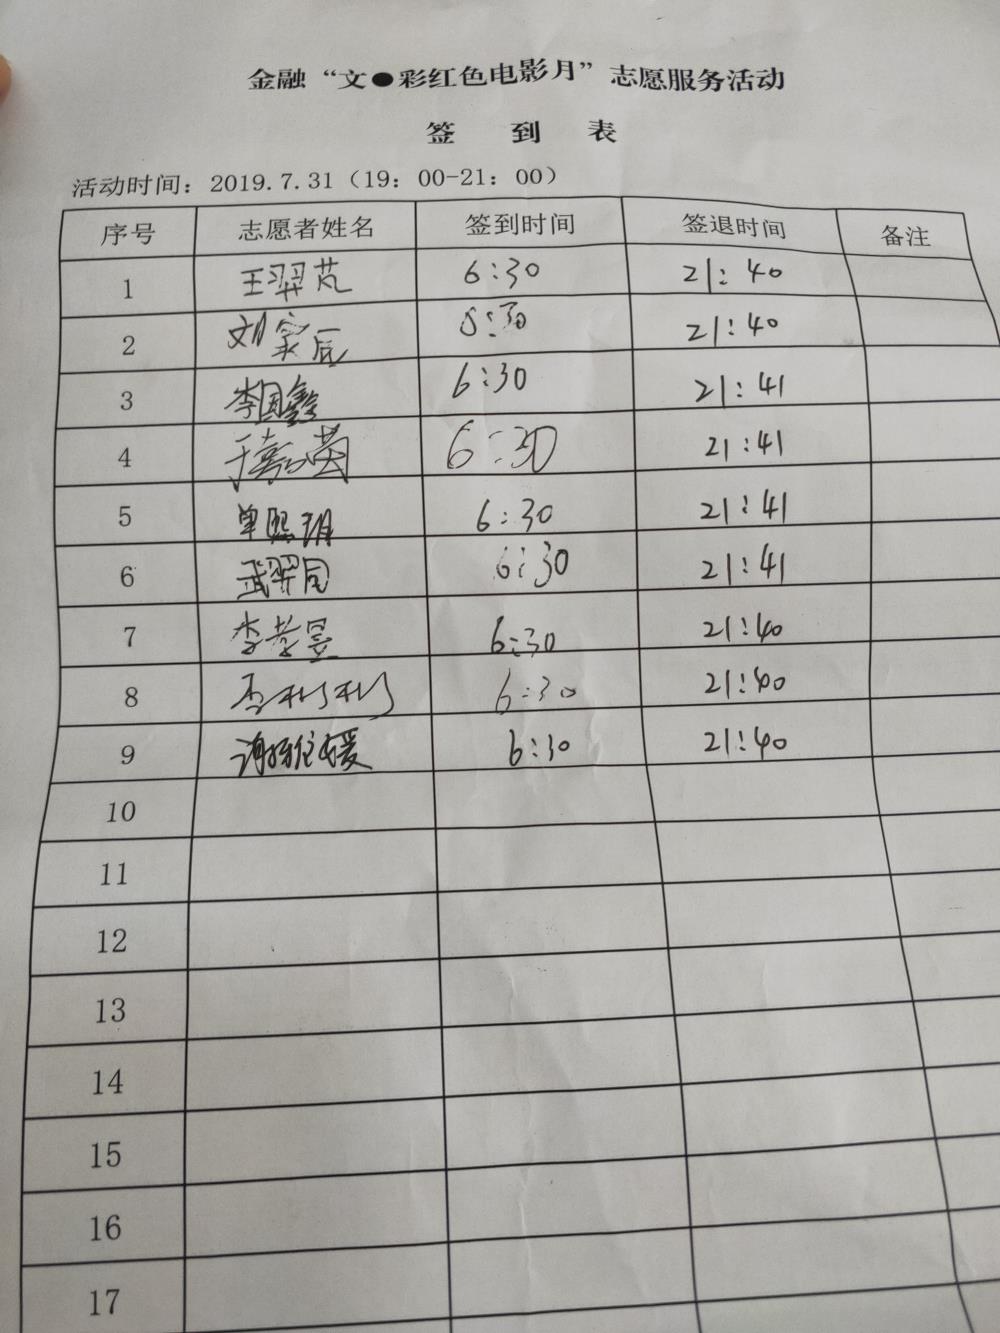 金融“文●彩红色电影月”志愿服务活动
签 到 表
活动时间：2019.7.31（19：00-21：00）
序号 志愿者姓名 签到时间 签退时间 备注
1 王羿芃 6:30 21:40
2 刘家辰 21:40
3 李国鑫 6:30 21:41
4 于嘉茵 6:30 21:41
5 单熙玥 6:30 21:41
6 武羿同 6:30 21:41
7 李孝昱 6:30 21:40
8 6:30 21:40
9 6:30 21:40
10
11
12
13
14
15
16
17